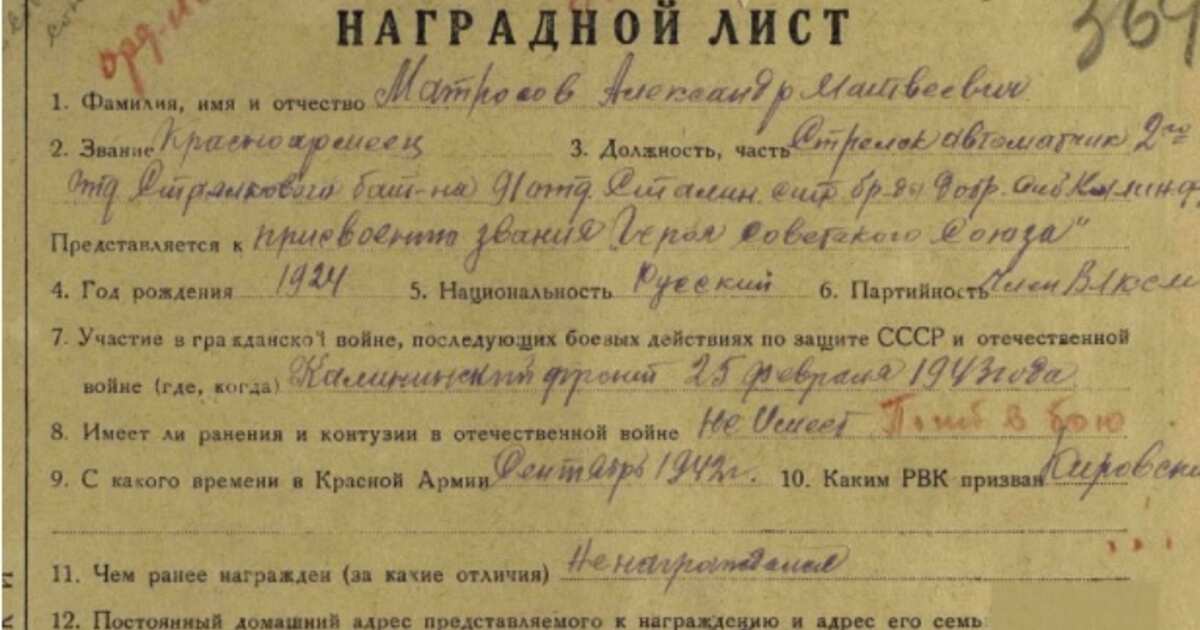 364
орд.
НАГРАДНОЙ ЛИСТ
1. Фамилия, имя и отчество Матросов Александр Матвеевич
2. Звание Красноармеец 3. Должность, часть Стрелок автоматчик 2го
отд Стрелкового бат-на 91 отд. Сталин. бр-ды добр.
Представляется к присвоению звания Героя Советского Союза"
4. Год рождения 1924 5. Национальность Русский 6. Партийность Член ВЛКСМ
7. Участие в гражданской войне, последующих боевых действиях по защите СССР и отечественной
войне (где, когда) Калининский фронт 25 февраля 1943 года
8. Имеет ли ранения и контузии в отечественной войне Не Имеет Погиб в бою
9. С какого времени в Красной Армии Сентябрь 1942г. 10. Каким РВК призван Кировски
11. Чем ранее награжден (за какие отличия) Не награждался
12. Постоянный домашний адрес представляемого к награждению и адрес его семь